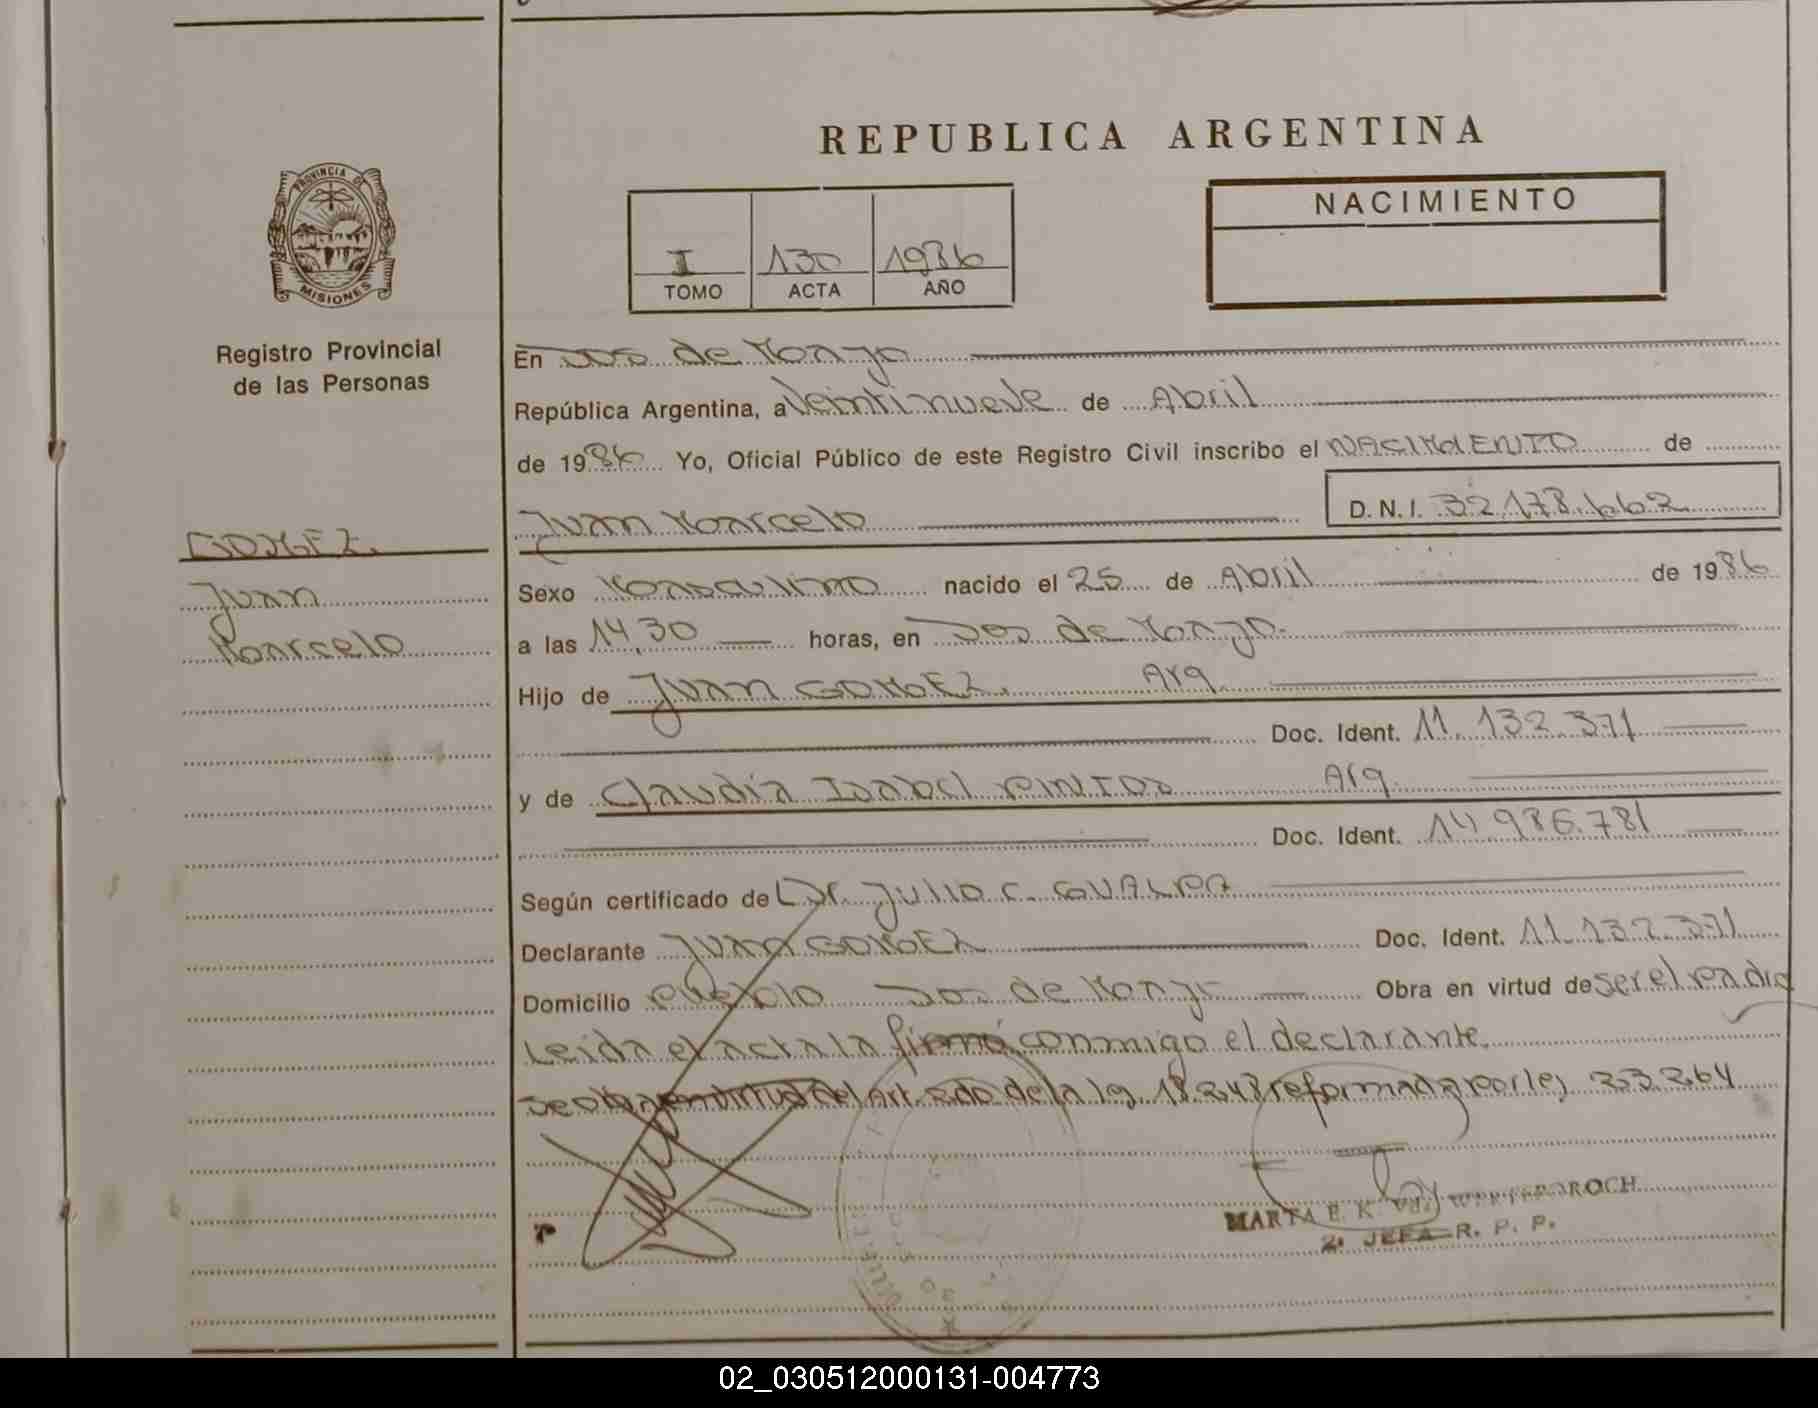 REPUBLICA ARGENTINA
PROVINCIA DE
MISIONES
Registro Provincial
de las Personas
I 130 1986
TOMO ACTA AÑO
NACIMIENTO
En Dos de Mayo
República Argentina, a Veintinueve de Abril
de 1986 Yo, Oficial Público de este Registro Civil inscribo el NACIMIENTO de
Juan Marcelo D.N.I. 32.178.662
GOMEZ.
Juan
Marcelo
Sexo Masculino nacido el 25 de Abril de 1986
a las 14,30 horas, en Dos de Mayo.
Hijo de Juan GOMEZ. Arg.
Doc. Ident. 11.132.371
y de Claudia Isabel PINTOS Arg.
Doc. Ident. 14.986.781
Según certificado de Dr. Julio C. GUALPA
Declarante Juan GOMEZ Doc. Ident. 11.132.371
Domicilio Pueblo Dos de Mayo Obra en virtud de ser el padre
Leida el acta la firmó conmigo el declarante.
Se obra en virtud del Art. 2do de la ley 18.248 reformada por ley 23.264
MARTA E. K. R OCH
2º JEFA R. P. P.
02_030512000131-004773